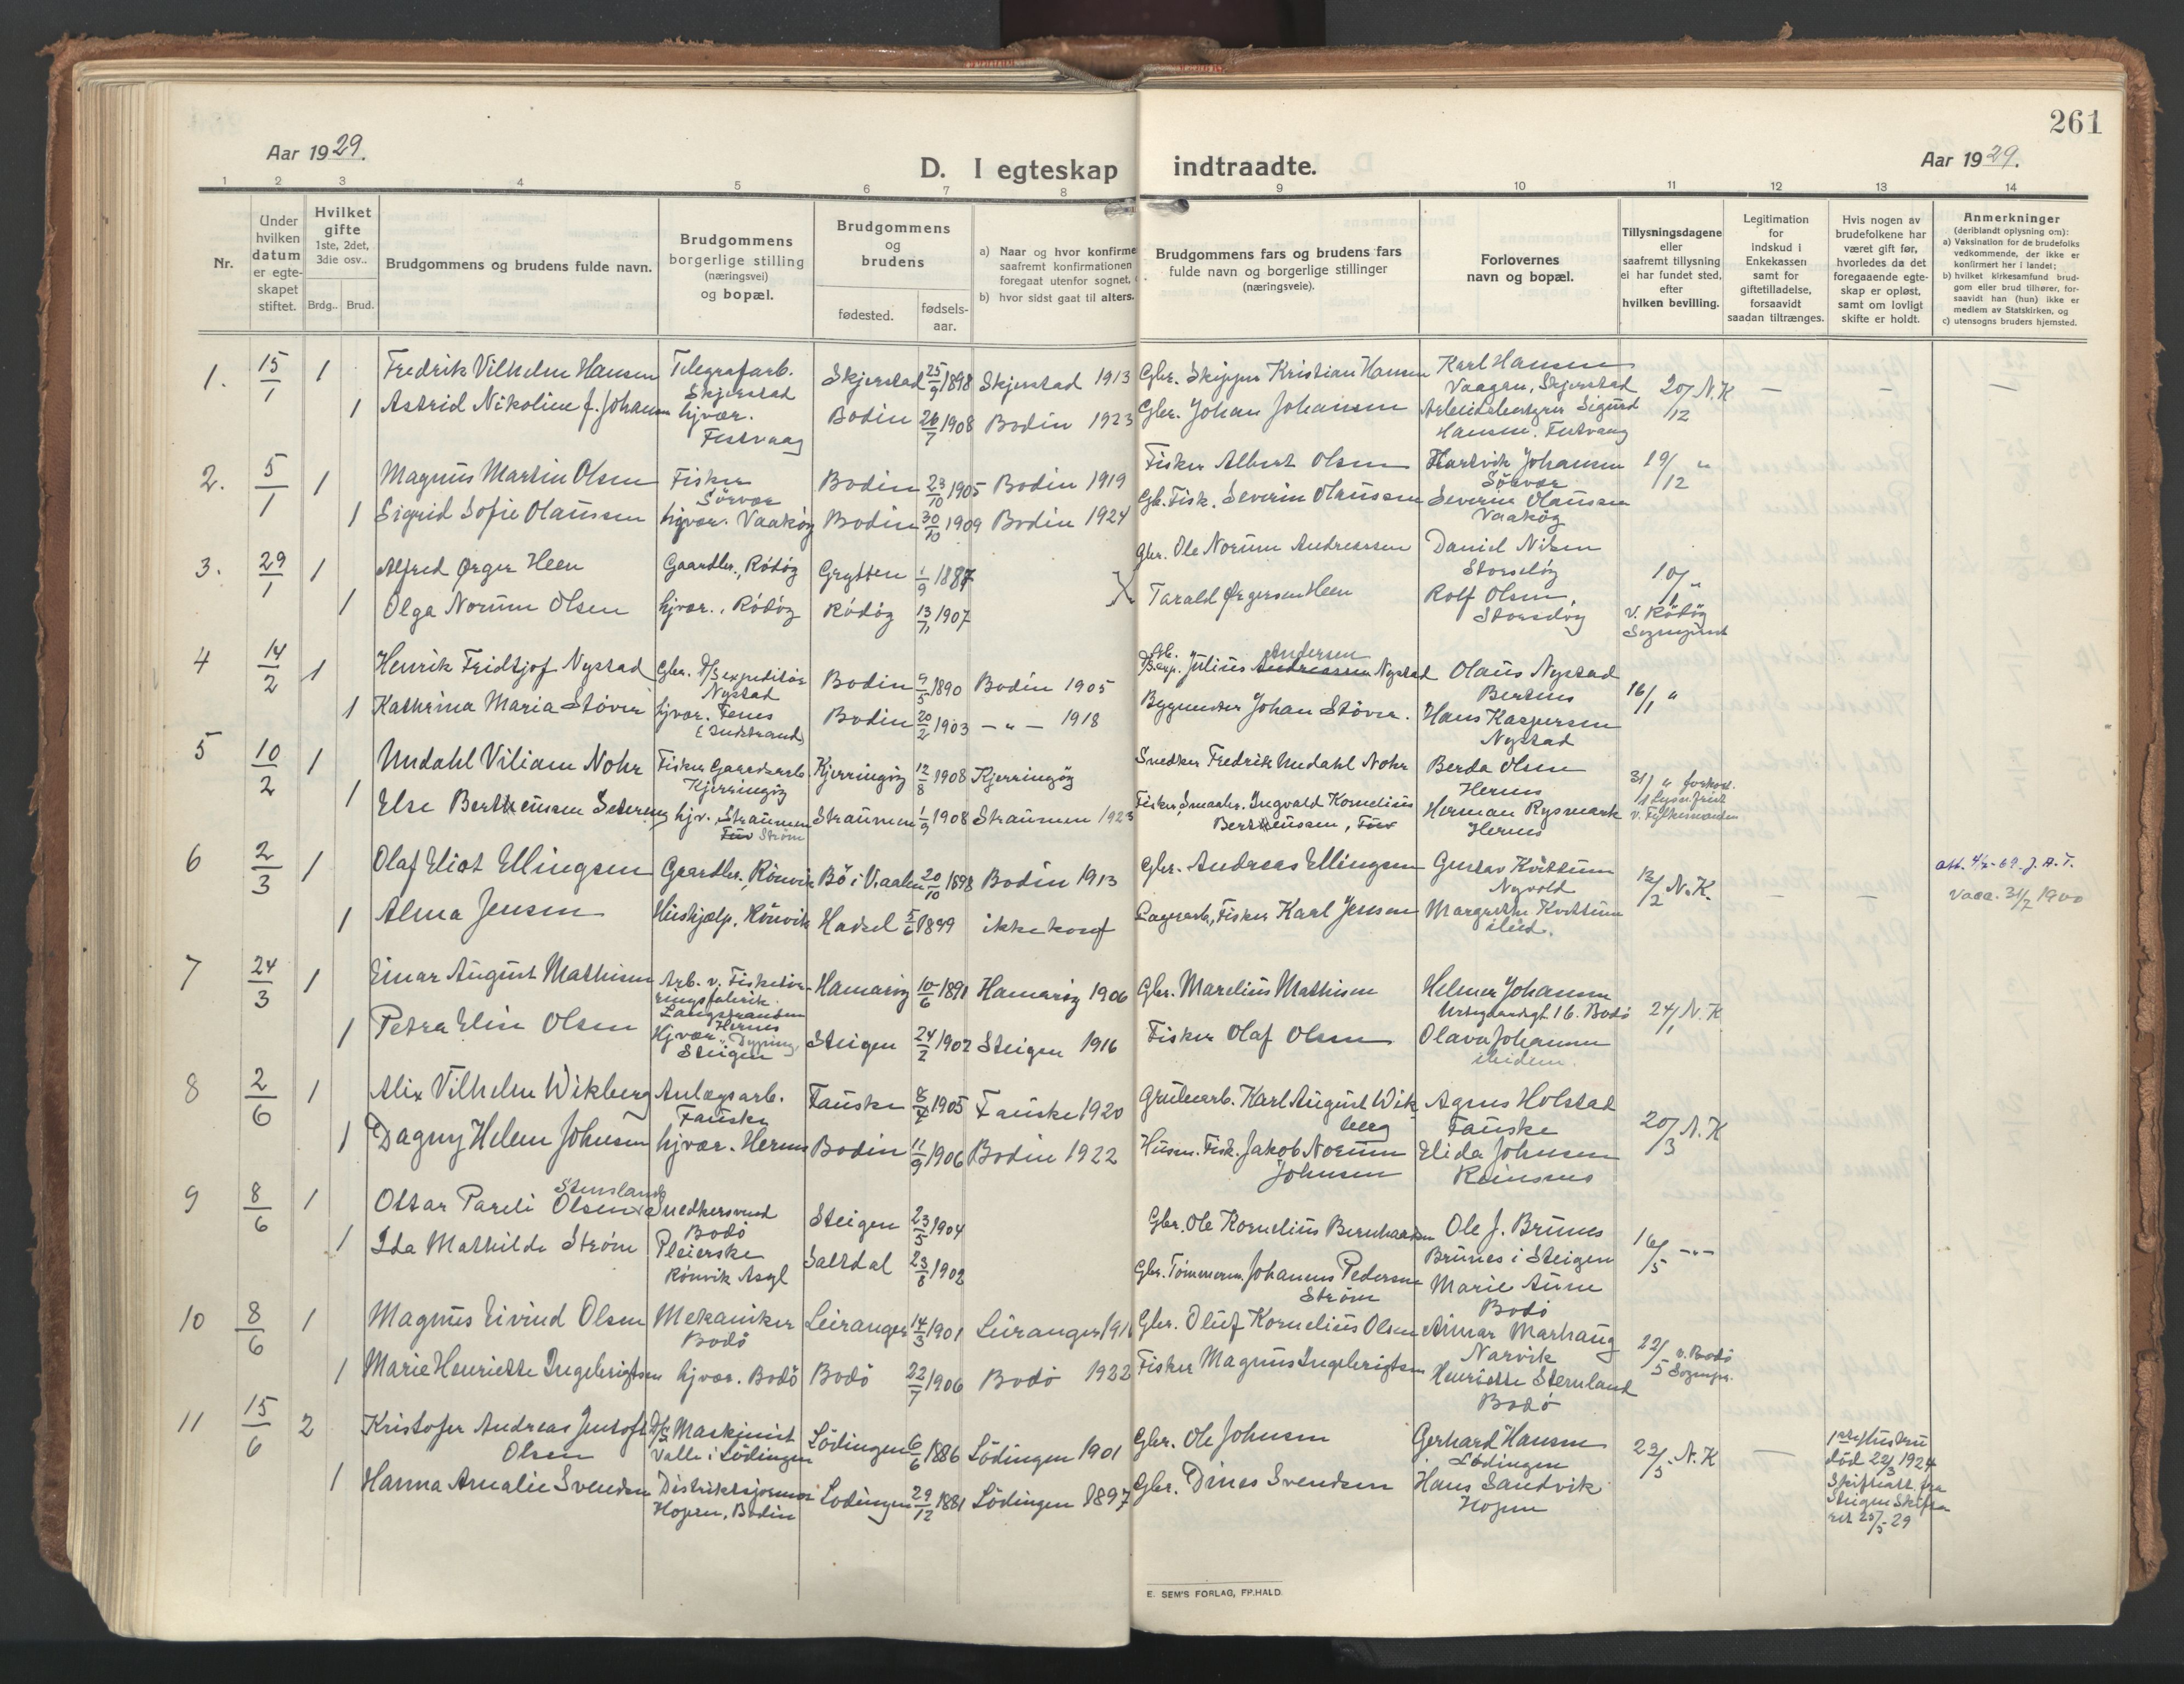 261
Aar 1929.
D. I egteskap indtraadte.
Aar 1929.
1 2 3 4 5 6 7 8 9 10 11 12 13 14
Nr.
Under hvilken datum er egteskapet stiftet.
Hvilket gifte 1ste, 2det, 3die osv..
Brdg.. Brud.
Brudgommens og brudens fulde navn.
Brudgommens borgerlige stilling (næringsvei) og bopæl.
Brudgommens og brudens
fødested. fødselsaar.
a) Naar og hvor konfirme
saafremt konfirmationen
foregaat utenfor sognet,
b) hvor sidst gaat til alters.
Brudgommens fars og brudens fars fulde navn og borgerlige stillinger (næringsveie).
Forlovernes navn og bopæl.
Tillysningsdagene eller saafremt tillysning ei har fundet sted, efter hvilken bevilling.
Legitimation for indskud i Enkekassen samt for giftetilladelse, forsaavidt saadan tiltrænges.
Hvis nogen av brudefolkene har været gift før, hvorledes da det foregaaende egteskap er opløst, samt om lovligt skifte er holdt.
Anmerkninger (deriblandt oplysning om): a) Vaksination for de brudefolks vedkommende, der ikke er konfirmert her i landet; b) hvilket kirkesamfund brudgom eller brud tilhører, forsaavidt han (hun) ikke er medlem av Statskirken, og c) utensogns bruders hjemsted.
1. 15/1 1 Fredrik Vilhelm Hansen Telegrafarb. Skjerstad Skjerstad 25/9 1898 Skjerstad 1913 Gbr. Skipper Kristian Hansen Karl Hansen Vaagan, Skjerstad 20/12 N.K — — —
1 Astrid Nikoline f. Johansen hjvær. Festvaag Bodin 26/7 1908 Bodin 1923 Gbr. Johan Johansen Sigurd Hansen. Festvaag
2. 5/1 1 Magnus Martin Olsen Fisker Sörvær Bodin 23/10 1905 Bodin 1919 Fisker Albert Olsen Hartvik Johansen Sörvær 19/12 "
1 Sigrid Sofie Olaussen hjvær. Vaaköy Bodin 30/10 1909 Bodin 1924 Gb. Fisk. Severin Olaussen Severin Olaussen Vaaköy
3. 29/1 1 Alfred Ørger Heen Gaardbr., Rödöy Grytten 1/9 1887 X Gbr. Ole Norum Andreassen Daniel Nilsen Storselöy 10/1 "
1 Olga Norum Olsen hjvær., Rödöy Rödöy 13/11 1907 Tarald Ørgersen Heen Rolf Olsen, Storselöy v. Rödöy Sogneprest
4 14/2 1 Henrik Fridtjof Nystad Gbr. D/S expeditör Nystad Bodin 9/5 1890 Bodin 1905 Gbr. Julius Andersen Nystad Olaus Nystad Bertnes 16/1 "
1 Kathrina Maria Støver hjvær. Fenes Bodin 20/2 1903 — " — 1918 Bygmester Johan Støver. Hans Kaspersen Nystad
5 10/2 1 Undahl Viliam Nohr Fisker Gaardsarb. Kjerringöy Kjerringöy 12/8 1908 Kjerringöy Snedker Fredrik Undahl Nohr Berda Olsen Hernes 31/1 " forkort. Lysn.frist v. Fylkesmanden
1 Else Bertheussen Setering hjv. Straumen Ström Straumen 1/9 1908 Straumen 1923 Fisker, Smaabr. Ingvald Kornelius Bertheussen, Herman Rysmark Hernes
6 2/3 1 Olaf Eliot Ellingsen Gaardbr., Rönvik Bö i V.aalen 20/10 1898 Bodin 1913 Gbr. Andreas Ellingsen Gustav Kvittum Nyvold 12/2 N.K. — — att. 4/2-69. J.A.T.
1 Alma Jensen Hushjælp, Rönvik Hadsel 5/6 1899 ikke konf Lagerarb., Fisker Karl Jensen Margrethe Kvittum ibid. Vacc. 31/7 1900
7 24/3 1 Einar August Mathisen Arb. v. Fisketörringsfabrik. Langstranden Hernes Hamaröy 10/6 1891 Hamaröy 1906 Gbr. Marelius Mathisen Helmer Johansen 16. Bodö 24/1 N.K
1 Petra Elise Olsen Hjvær. Steigen Steigen 24/2 1902 Steigen 1916 Fisker Olaf Olsen Olava Johansen ibidem.
8 2/6 1 Alix Vilhelm Wikberg Anlægsarb. Fauske Fauske 8/4 1905 Fauske 1920 Grubearb. Karl August Wikberg Agnes Holstad Fauske 20/3 N.K
1 Dagny Helene Johnsen hjvær. Hernes Bodin 11/9 1906 Bodin 1922 Husm. Fisk. Jakob Norum Johnsen Elida Johnsen Reinsnes
9 8/6 1 Ottar Pareli Olsen Stensland Snedkersvend Bodö Steigen 23/5 1904 Gbr. Ole Kornelius Bernhardsen Ole J. Brunes Brunes i Steigen 16/5 — " —
1 Ida Mathilde Strøm Pleierske Rönvik Asyl Saltdal 23/8 1902 Gbr. Tömmerm. Johannes Pedersen Strøm Marie Aune Bodö
10 8/6 1 Magnus Eivind Olsen Mekaniker Bodö Leiranger 14/3 1901 Leiranger Gbr. Oluf Kornelius Olsen Marhaug Narvik 22/5 v. Bodö Sognepr.
1 Marie Henriette Ingebrigtsen hjvær. Bodö Bodö 22/7 1906 Bodö 1922 Fisker Magnus Ingebrigtsen Henriette Stensland Bodö
11 15/6 2 Kristofer Andreas Jentoft Olsen D/S Maskinist Valle i Lödingen Lödingen 6/6 1886 Lödingen 1901 Gbr. Ole Johnsen Gerhard Hansen Lödingen 22/5. N.K — 1ste Hustru död 22/3 1924 Skifteatt. fra Steigen Skifteret 25/5-29
1 Hanna Amalie Svendsen Distriktsjormor Hopen, Bodin Lödingen 29/12 1881 Lödingen 1897 Gbr. Dines Svendsen Hans Sandvik Hopen
E. SEM'S FORLAG, FR.HALD.